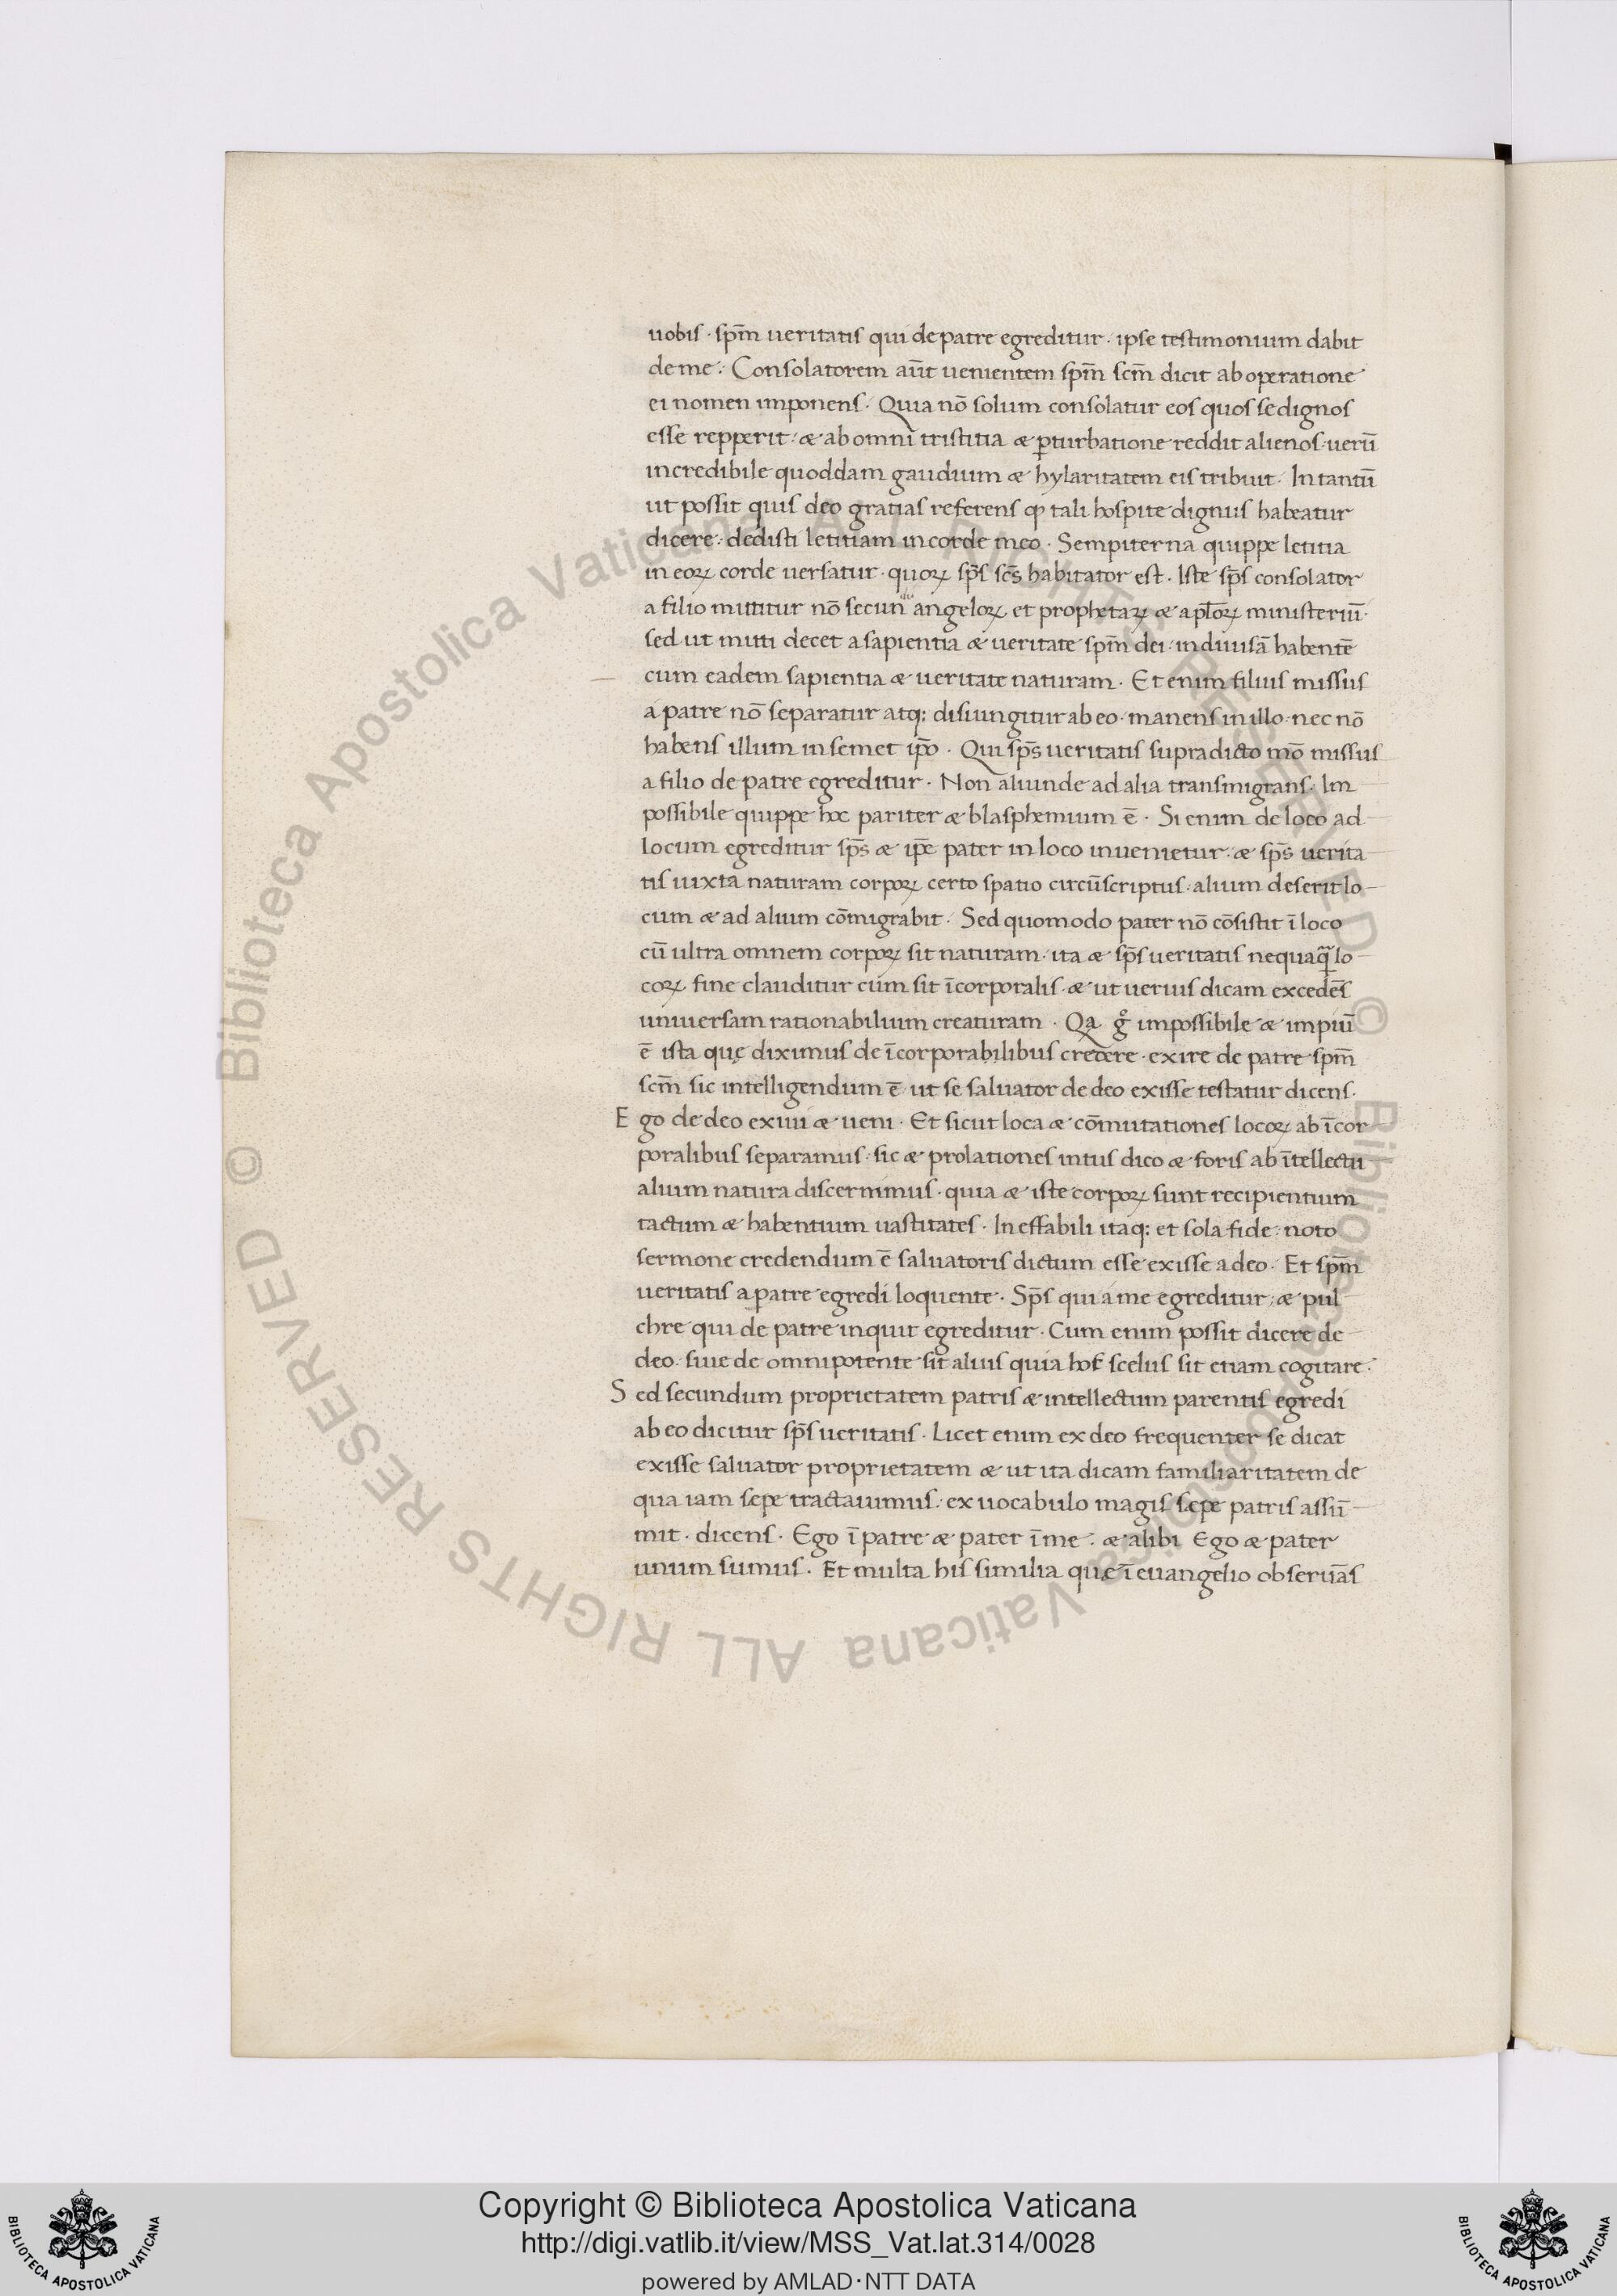 uobis · sp̄m ueritatis qui de patre egreditur · ipse testimonium dabit
de me :· Consolatorem aūt uenientem sp̄m sc̄m dicit ab operatione
ei nomen imponens · Quia nō solum consolatur eos quos se dignos
esse repperit · & ab omni tristitia & ꝑturbatione reddit alienos · uerū
incredibile quoddam gaudium & hylaritatem eis tribuit · In tantū
ut possit quis deo gratias referens ꝙ tali hospite dignus habeatur
dicere · dedisti letitiam in corde meo · Sempiterna quippe letitia
in eoꝝ corde uersatur · quoꝝ sp̄s sc̄s habitator est · Iste sp̄s consolator
a filio mittitur nō secundū angeloꝝ et prophetaꝝ & ap̄loꝝ ministeriū ·
sed ut mitti decet a sapientia & ueritate sp̄m dei · indiuisā habentē
cum eadem sapientia & ueritate naturam · Et enim filius missus
a patre nō separatur atq; disiungitur ab eo · manens in illo · nec nō
habens illum in semet ip̄o · Qui sp̄s ueritatis supradicto mō missus
a filio de patre egreditur · Non aliunde ad alia transmigrans · Im
possibile quippe hoc pariter & blasphemium ē · Si enim de loco ad
locum egreditur sp̄s & ip̄e pater in loco inuenietur · & sp̄s uerita
tis iuxta naturam corpoꝝ certo spatio circūscriptus · alium deserit lo
cum & ad alium cōmigrabit · Sed quomodo pater nō cōsistit ī loco
cū ultra omnem corpoꝝ sit naturam · ita & sp̄s ueritatis nequaq̄ lo
coꝝ fine clauditur cum sit īcorporalis · & ut uerius dicam excedēs
uniuersam rationabilium creaturam · Qa gͦ impossibile & impiū
ē ista quę diximus de īcorporabilibus credere · exire de patre sp̄m
sc̄m sic intelligendum ē · ut se saluator de deo exisse testatur dicens ·
Ego de deo exiui & ueni · Et sicut loca & cōmutationes locoꝝ ab īcor
poralibus separamus · sic & prolationes intus dico & foris ab ītellectu
alium natura discernimus · quia & iste corpoꝝ sunt recipientium
tactum & habentium uastitates · Ineffabili itaq; et sola fide · noto
sermone credendum ē saluatoris dictum esse exisse a deo · Et sp̄m
ueritatis a patre egredi loquente · Sp̄s qui a me egreditur · & pul
chre qui de patre inquit egreditur · Cum enim possit dicere de
deo · siue de omnipotente sit alius quia scelus sit etiam cogitare ·
Sed secundum proprietatem patris & intellectum parentis egredi
ab eo dicitur sp̄s ueritatis · Licet enim ex deo frequenter se dicat
exisse saluator proprietatem & ut ita dicam familiaritatem de
qua iam sepe tractauimus · ex uocabulo magis sæpe patris assū
mit · dicens · Ego ī patre & pater ī me · & alibi Ego & pater
unum sumus · Et multa his similia quę ī euangelio obseruās
Copyright © Biblioteca Apostolica Vaticana
http://digi.vatlib.it/view/MSS_Vat.lat.314/0028
powered by AMLAD·NTT DATA
BIBLIOTECA APOSTOLICA VATICANA
BIBLIOTECA APOSTOLICA VATICANA
© Biblioteca Apostolica Vaticana ALL RIGHTS RESERVED © Biblioteca Apostolica Vaticana ALL RIGHTS RESERVED